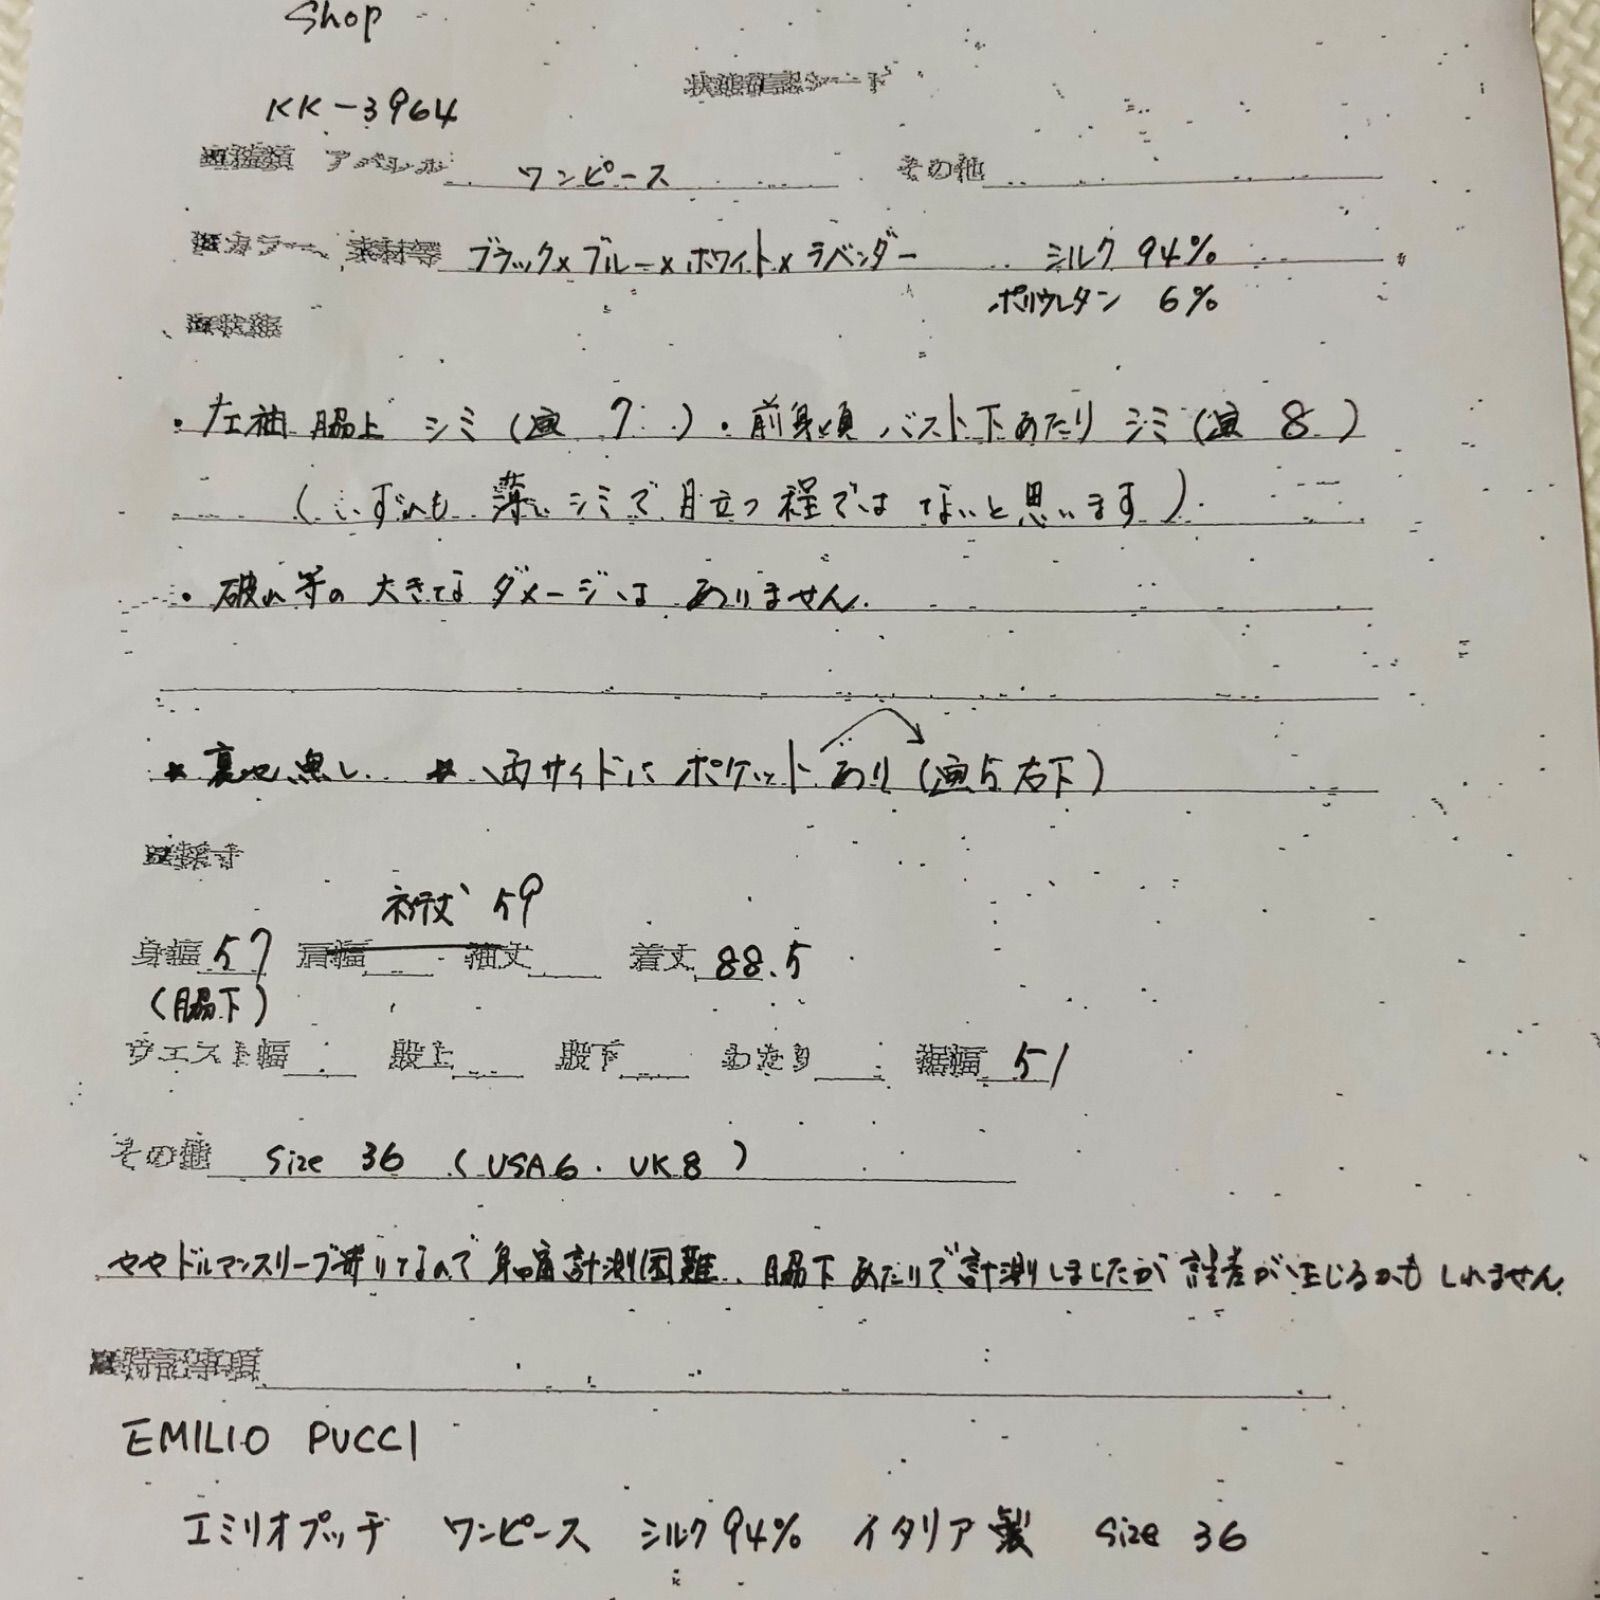 Shop
状態確認シート
KK-3964
■種類 アパレル ワンピース その他
■カラー、素材等 ブラック×ブルー×ホワイト×ラベンダー シルク 94%
ポリウレタン 6%
■状態
・左袖 脇上 シミ (画 7 ) ・前身頃 バスト下あたり シミ (画 8 )
(いずれも 薄いシミで目立つ程ではないと思います)
・破れ等の 大きな ダメージは ありません.
* 裏地無し * 両サイドに ポケットあり (画5右下)
■採寸
裄丈 59
身幅 57 肩幅 袖丈 着丈 88.5
(脇下)
ウエスト幅 股上 股下 わたり 裾幅 51
その他 Size 36 (USA6. UK8)
ややドルマンスリーブ寄りなので 身幅計測困難、脇下あたりで計測しましたが 誤差が生じるかもしれません.
■特記事項
EMILIO PUCCI
エミリオプッチ ワンピース シルク94% イタリア製 Size 36